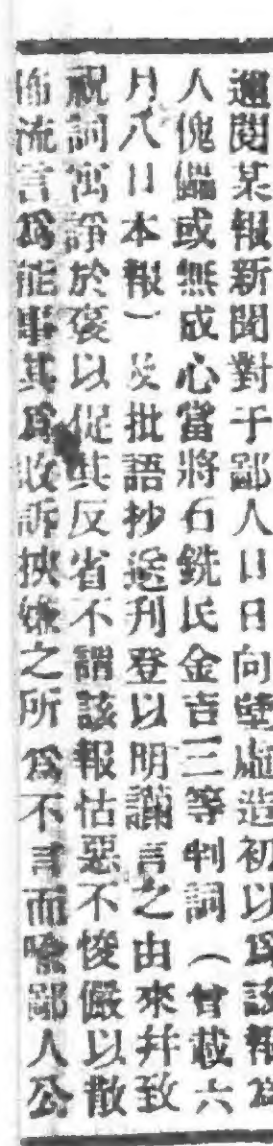 邇閱某報新聞對于鄙人日日向壁虛造初以爲該報爲
人傀儡或無成心當將石銑民金吉三等判詞（曾載六
月八日本報）及批語抄送刊登以明謠言之由來幷致
祝詞寓諍於褒以促其反省不謂該報怙惡不悛儼以散
佈流言爲能事其爲敗訴挾嫌之所爲不言而喻鄙人公